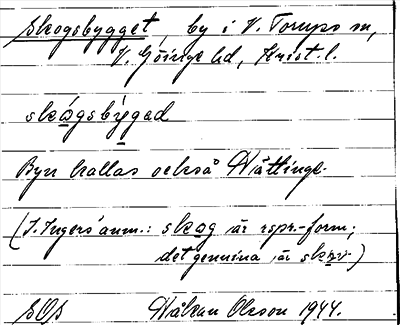 Skogsbygget, by i V. Torups sn,
V. Göinge hd, Krist. l.
skógsbýgad
Byn kallas också Vättinge.
(I. Ingers' anm.: skog är rspr.-form;
det genuina är skov)
SOS Håkan Olsson 1944.